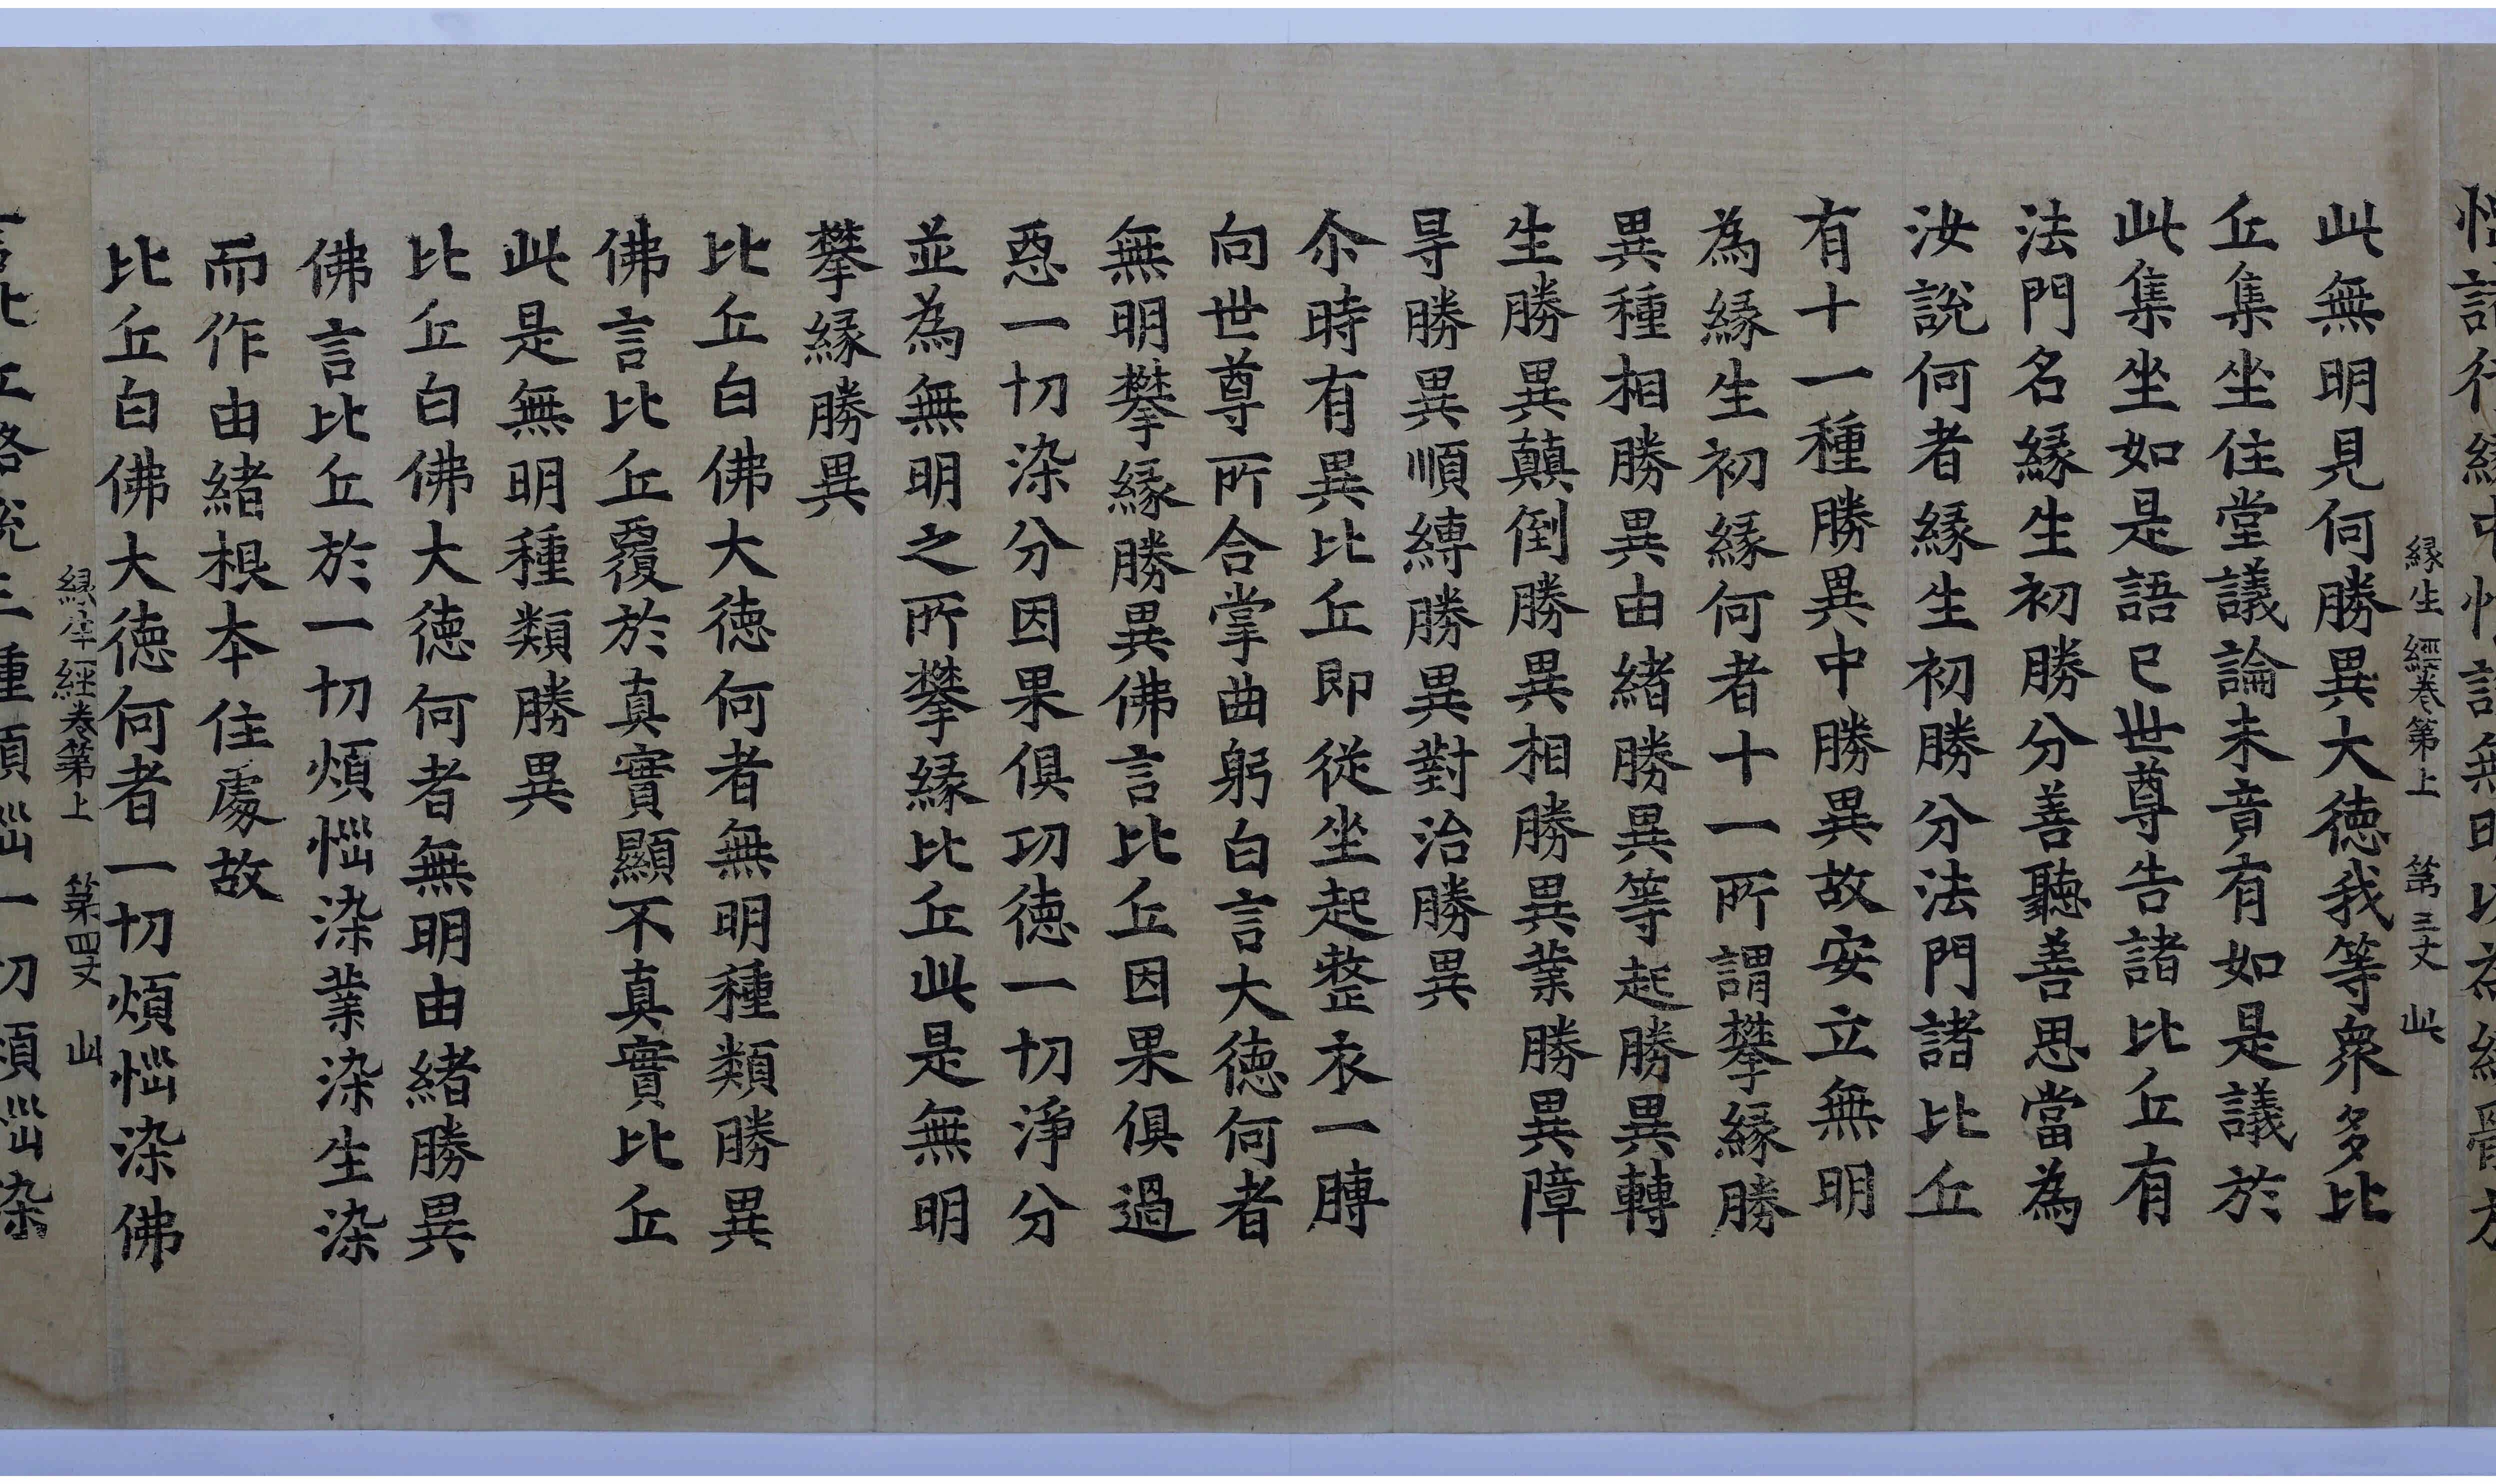 緣生經卷第上　第三丈　此
此無明見何勝異大德我等衆多比
丘集坐住堂議論未音有如是議於
此集坐如是語已世尊告諸比丘有
法門名緣生初勝分善聽善思當為
汝說何者緣生初勝分法門諸比丘
有十一種勝異中勝異故安立無明
為緣生初緣何者十一所謂攀緣勝
異種相勝異由緒勝異等起勝異轉
生勝異顛倒勝異相勝異業勝異障
㝵勝異順縛勝異對治勝異
尒時有異比丘即從坐起整衣一膊
向世尊所合掌曲躬白言大德何者
無明攀緣勝異佛言比丘因果俱過
惡一切染分因果俱功德一切淨分
並為無明之所攀緣比丘此是無明
攀緣勝異
比丘白佛大德何者無明種類勝異
佛言比丘覆於真實顯不真實比丘
此是無明種類勝異
比丘白佛大德何者無明由緒勝異
佛言比丘於一切煩惱染業染生染
而作由緒根本住處故
比丘白佛大德何者一切煩惱染佛
緣生經卷第上　第四丈　此
言比丘略說三種煩惱一切煩惱染